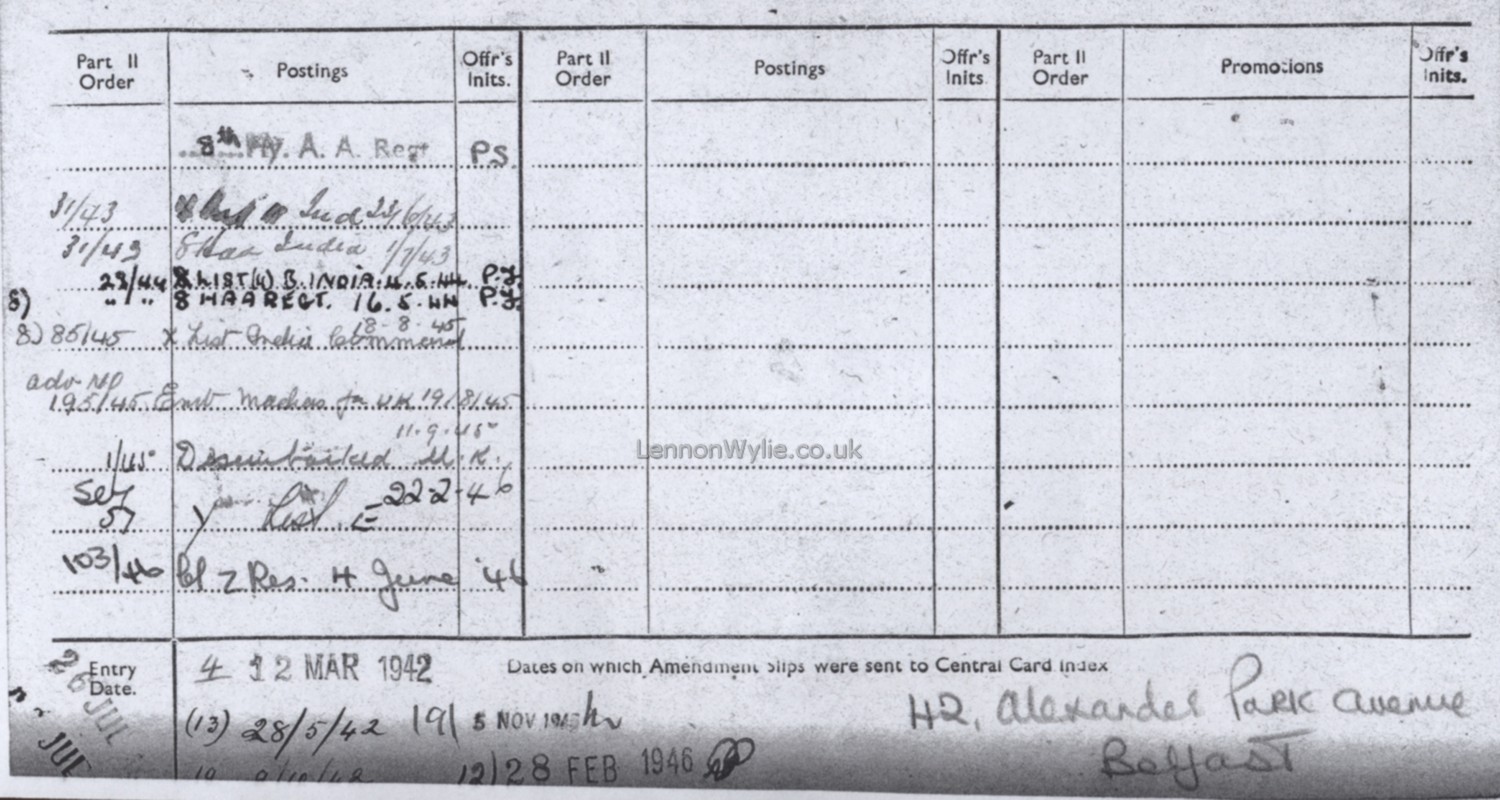 Part II Order Postings Offr's Inits. Part II Order Postings Offr's Inits. Part II Order Promotions Offr's Inits.
8th Hy. A. A. Regt PS.
31/43 Ind 23/6/43
31/43 8 Haa India 1/7/43
23/44 LIST B. INDIA. 4.5.44 P.J.
8) " " 8 HAA REGT. 16.5.44 P.J.
8-8-45
8) 85/45 X List India Command
adv
195/45 Emb Madras for UK 19/8/45
11.9.45
1/45 Disembarked U.K.
22-2-46
57 Y List E
103/46 Cl Z Res. 4 June '46
LennonWylie.co.uk
Entry Date. 4 12 MAR 1942 Dates on which Amendment Slips were sent to Central Card Index
26 JUL
(13) 28/5/42 191 5 NOV 1945
42, Alexander Park Avenue
JUL
12/28 FEB 1946
Belfast